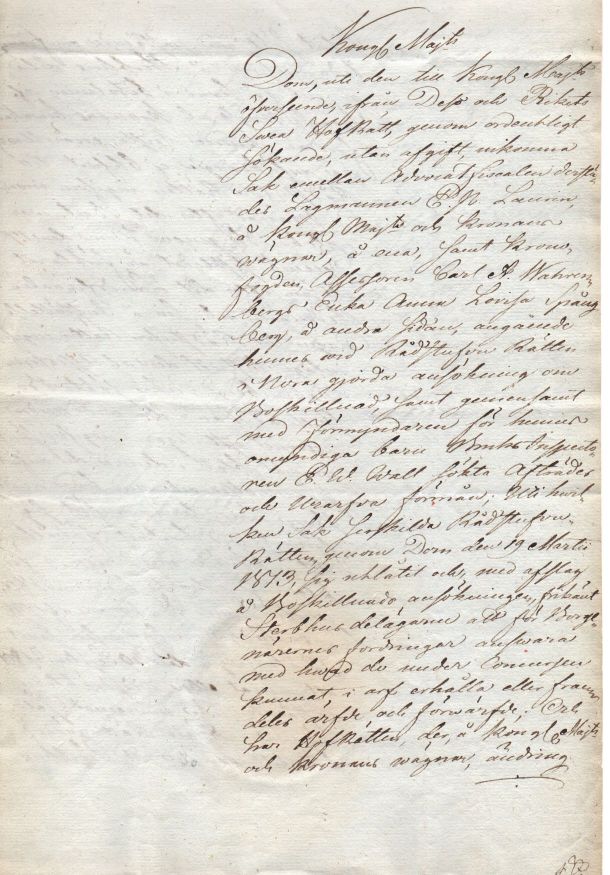 Kongl Majts
Dom, uti den till Kongl Majts
öfverseende, ifrån Dess och Rikets
Svea HofRätt, genom ordentligt
Sökande, utan afgift inkomna
Sak emellan Advocatfiscalen
des Lagmannen P. N. Laurin
å Kongl Majts och Kronans
wägnar, å ena, samt Krono,
fogden, Assessoren Carl A. Wahren,
bergs Enka Anna Lovisa Spång
berg, å andra sidan, angående
hennes wid Rådstufvu Rätten
i Nora gjorda ansökning om
Boskillnad, samt gemensamt
med Förmyndaren för hennes
omyndiga barn Bruks Inspecto,
ren E. W. Wall sökta Afträdes
och Urarfva förmån; Uti hvil,
ken Sak Rådstufvu,
Rätten, genom Dom den 19 Martii
1813, sig utlåtit och, med afslag
å Boskillnads ansökningen, frikänt
Sterbhus delägarne att för Borge,
närernes fordringar answara
med hwad de under Concursen
kunnat i arf erhålla eller fram,
deles ärfde och förwärfde; Och
har HofRätten, der, å Kongl Majts
och Kronans wägnar, ändring